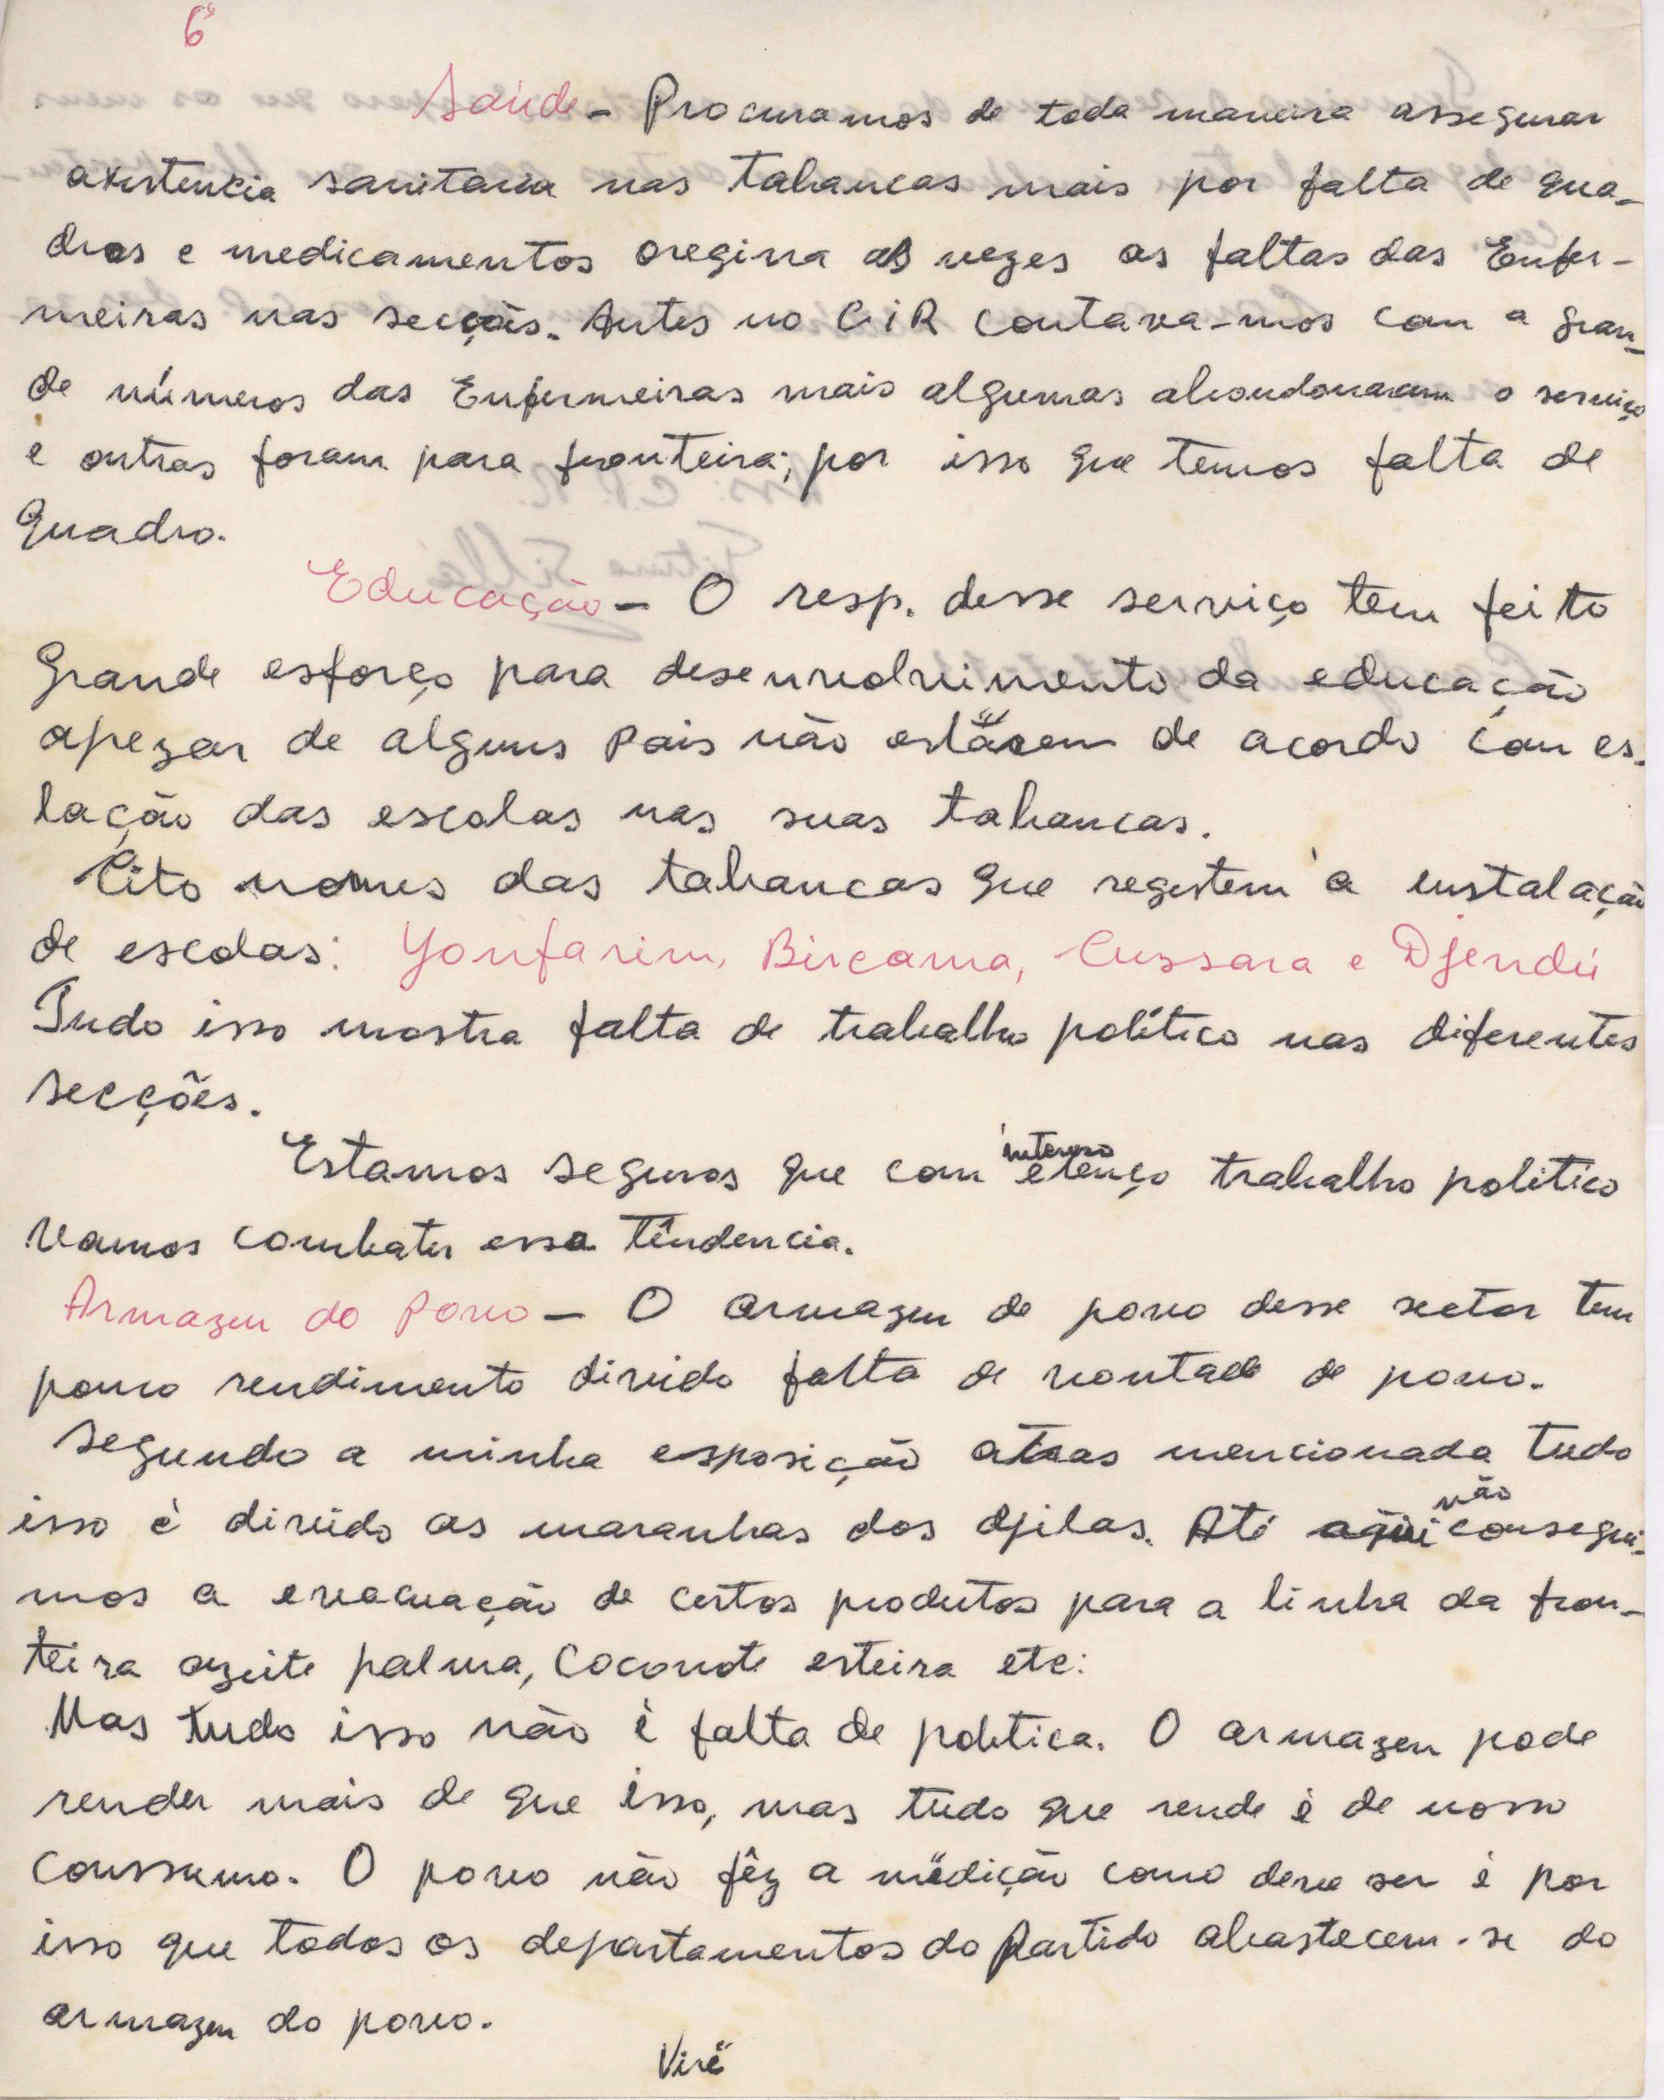 6º
Saúde - Procuramos de toda maneira assegurar
axistencia sanitaria nas tabancas mais por falta de qua-
dros e medicamentos oregina as vezes as faltas das Enfer-
meiras nas secções. Antes no CiR contava-mos com a gran-
de números das Enfermeiras mais algumas abondonaram o serviço
e outras foram para fronteira; por isso que temos falta de
quadro.
Educação - O resp. desse serviço tem feito
grande esforço para desenvolvimento da educação
apezar de alguns pais não estarem de acordo com es-
lação das escolas nas suas tabancas.
Cito nomes das tabancas que registem a enstalação
de escolas: Yonfarim, Bircama, Cussara e Djendú
Tudo isso mostra falta de trabalho político nas diferentes
secções.
Estamos seguros que com intenso trabalho politico
vamos combater essa têndencia.
Armazem do povo - O armazem de povo desse sector tem
pouco rendimento divido falta de vontade de povo.
Segundo a minha esposição atras mencionada tudo
isso é divido as maranhas dos djilas. Até aqui não consegui-
mos a evacuação de certos produtos para a linha da fron-
teira azeite palma, Coconote esteira etc:
Mas tudo isso não é falta de politica. O armazem pode
render mais de que isso, mas tudo que rende é de nosso
conssumo. O povo não fêz a médição como deve ser é por
isso que todos os departamentos do Partido abastecem-se do
armazem do povo.
Virê